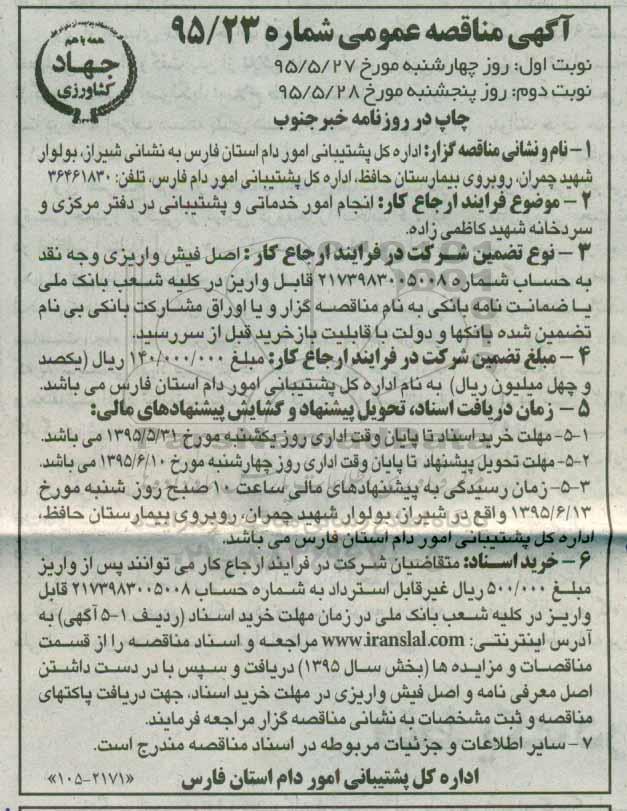 آگهی مناقصه عمومی شماره ۹۵/۲۳
همه با هم
جهاد
کشاورزی
نوبت اول: روز چهارشنبه مورخ ۹۵/۵/۲۷
نوبت دوم: روز پنجشنبه مورخ ۹۵/۵/۲۸
چاپ در روزنامه خبر جنوب
۱- نام و نشانی مناقصه گزار: اداره کل پشتیبانی امور دام استان فارس به نشانی شیراز، بولوار
شهید چمران، روبروی بیمارستان حافظ، اداره کل پشتیبانی امور دام فارس، تلفن: ۳۶۴۶۱۸۳۰
۲- موضوع فرایند ارجاع کار: انجام امور خدماتی و پشتیبانی در دفتر مرکزی و
سردخانه شهید کاظمی زاده.
۳- نوع تضمین شرکت در فرایند ارجاع کار: اصل فیش واریزی وجه نقد
به حساب شماره ۲۱۷۳۹۸۳۰۰۵۰۰۸ قابل واریز در کلیه شعب بانک ملی
یا ضمانت نامه بانکی به نام مناقصه گزار و یا اوراق مشارکت بانکی بی نام
تضمین شده بانکها و دولت با قابلیت بازخرید قبل از سررسید.
۴- مبلغ تضمین شرکت در فرایند ارجاع کار: مبلغ ۱۴۰/۰۰۰/۰۰۰ ریال (یکصد
و چهل میلیون ریال) به نام اداره کل پشتیبانی امور دام استان فارس می باشد.
۵- زمان دریافت اسناد، تحویل پیشنهاد و گشایش پیشنهادهای مالی:
۵-۱- مهلت خرید اسناد تا پایان وقت اداری روز یکشنبه مورخ ۱۳۹۵/۵/۳۱ می باشد.
۵-۲- مهلت تحویل پیشنهاد تا پایان وقت اداری روز چهارشنبه مورخ ۱۳۹۵/۶/۱۰ می باشد.
۵-۳- زمان رسیدگی به پیشنهادهای مالی ساعت ۱۰ صبح روز شنبه مورخ
۱۳۹۵/۶/۱۳ واقع در شیراز، بولوار شهید چمران، روبروی بیمارستان حافظ،
اداره کل پشتیبانی امور دام استان فارس می باشد.
۶- خرید اسناد: متقاضیان شرکت در فرایند ارجاع کار می توانند پس از واریز
مبلغ ۵۰۰/۰۰۰ ریال غیرقابل استرداد به شماره حساب ۲۱۷۳۹۸۳۰۰۵۰۰۸ قابل
واریز در کلیه شعب بانک ملی در زمان مهلت خرید اسناد (ردیف ۱-۵ آگهی) به
آدرس اینترنتی: www.iranslal.com مراجعه و اسناد مناقصه را از قسمت
مناقصات و مزایده ها (بخش سال ۱۳۹۵) دریافت و سپس با در دست داشتن
اصل معرفی نامه و اصل فیش واریزی در مهلت خرید اسناد، جهت دریافت پاکتهای
مناقصه و ثبت مشخصات به نشانی مناقصه گزار مراجعه فرمایند.
۷- سایر اطلاعات و جزئیات مربوطه در اسناد مناقصه مندرج است.
اداره کل پشتیبانی امور دام استان فارس
«۱۰۵-۲۱۷۱»